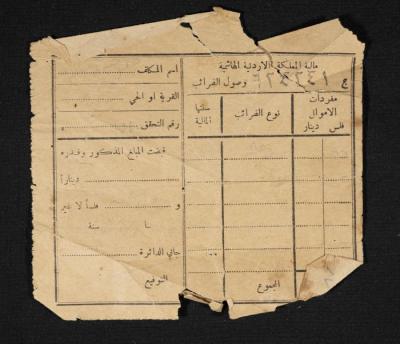 مالية المملكة الاردنية الهاشمية
وصول الضرائب
ع
مفردات الاموال
فلس دينار
نوع الضرائب
سنتها المالية
المجموع
اسم المكلف
القرية او الحي
رقم التحقق
قبضت المبلغ المذكور وقدره
ديناراً
و فلساً لا غير
سنة
جابي الدائرة
التوقيع